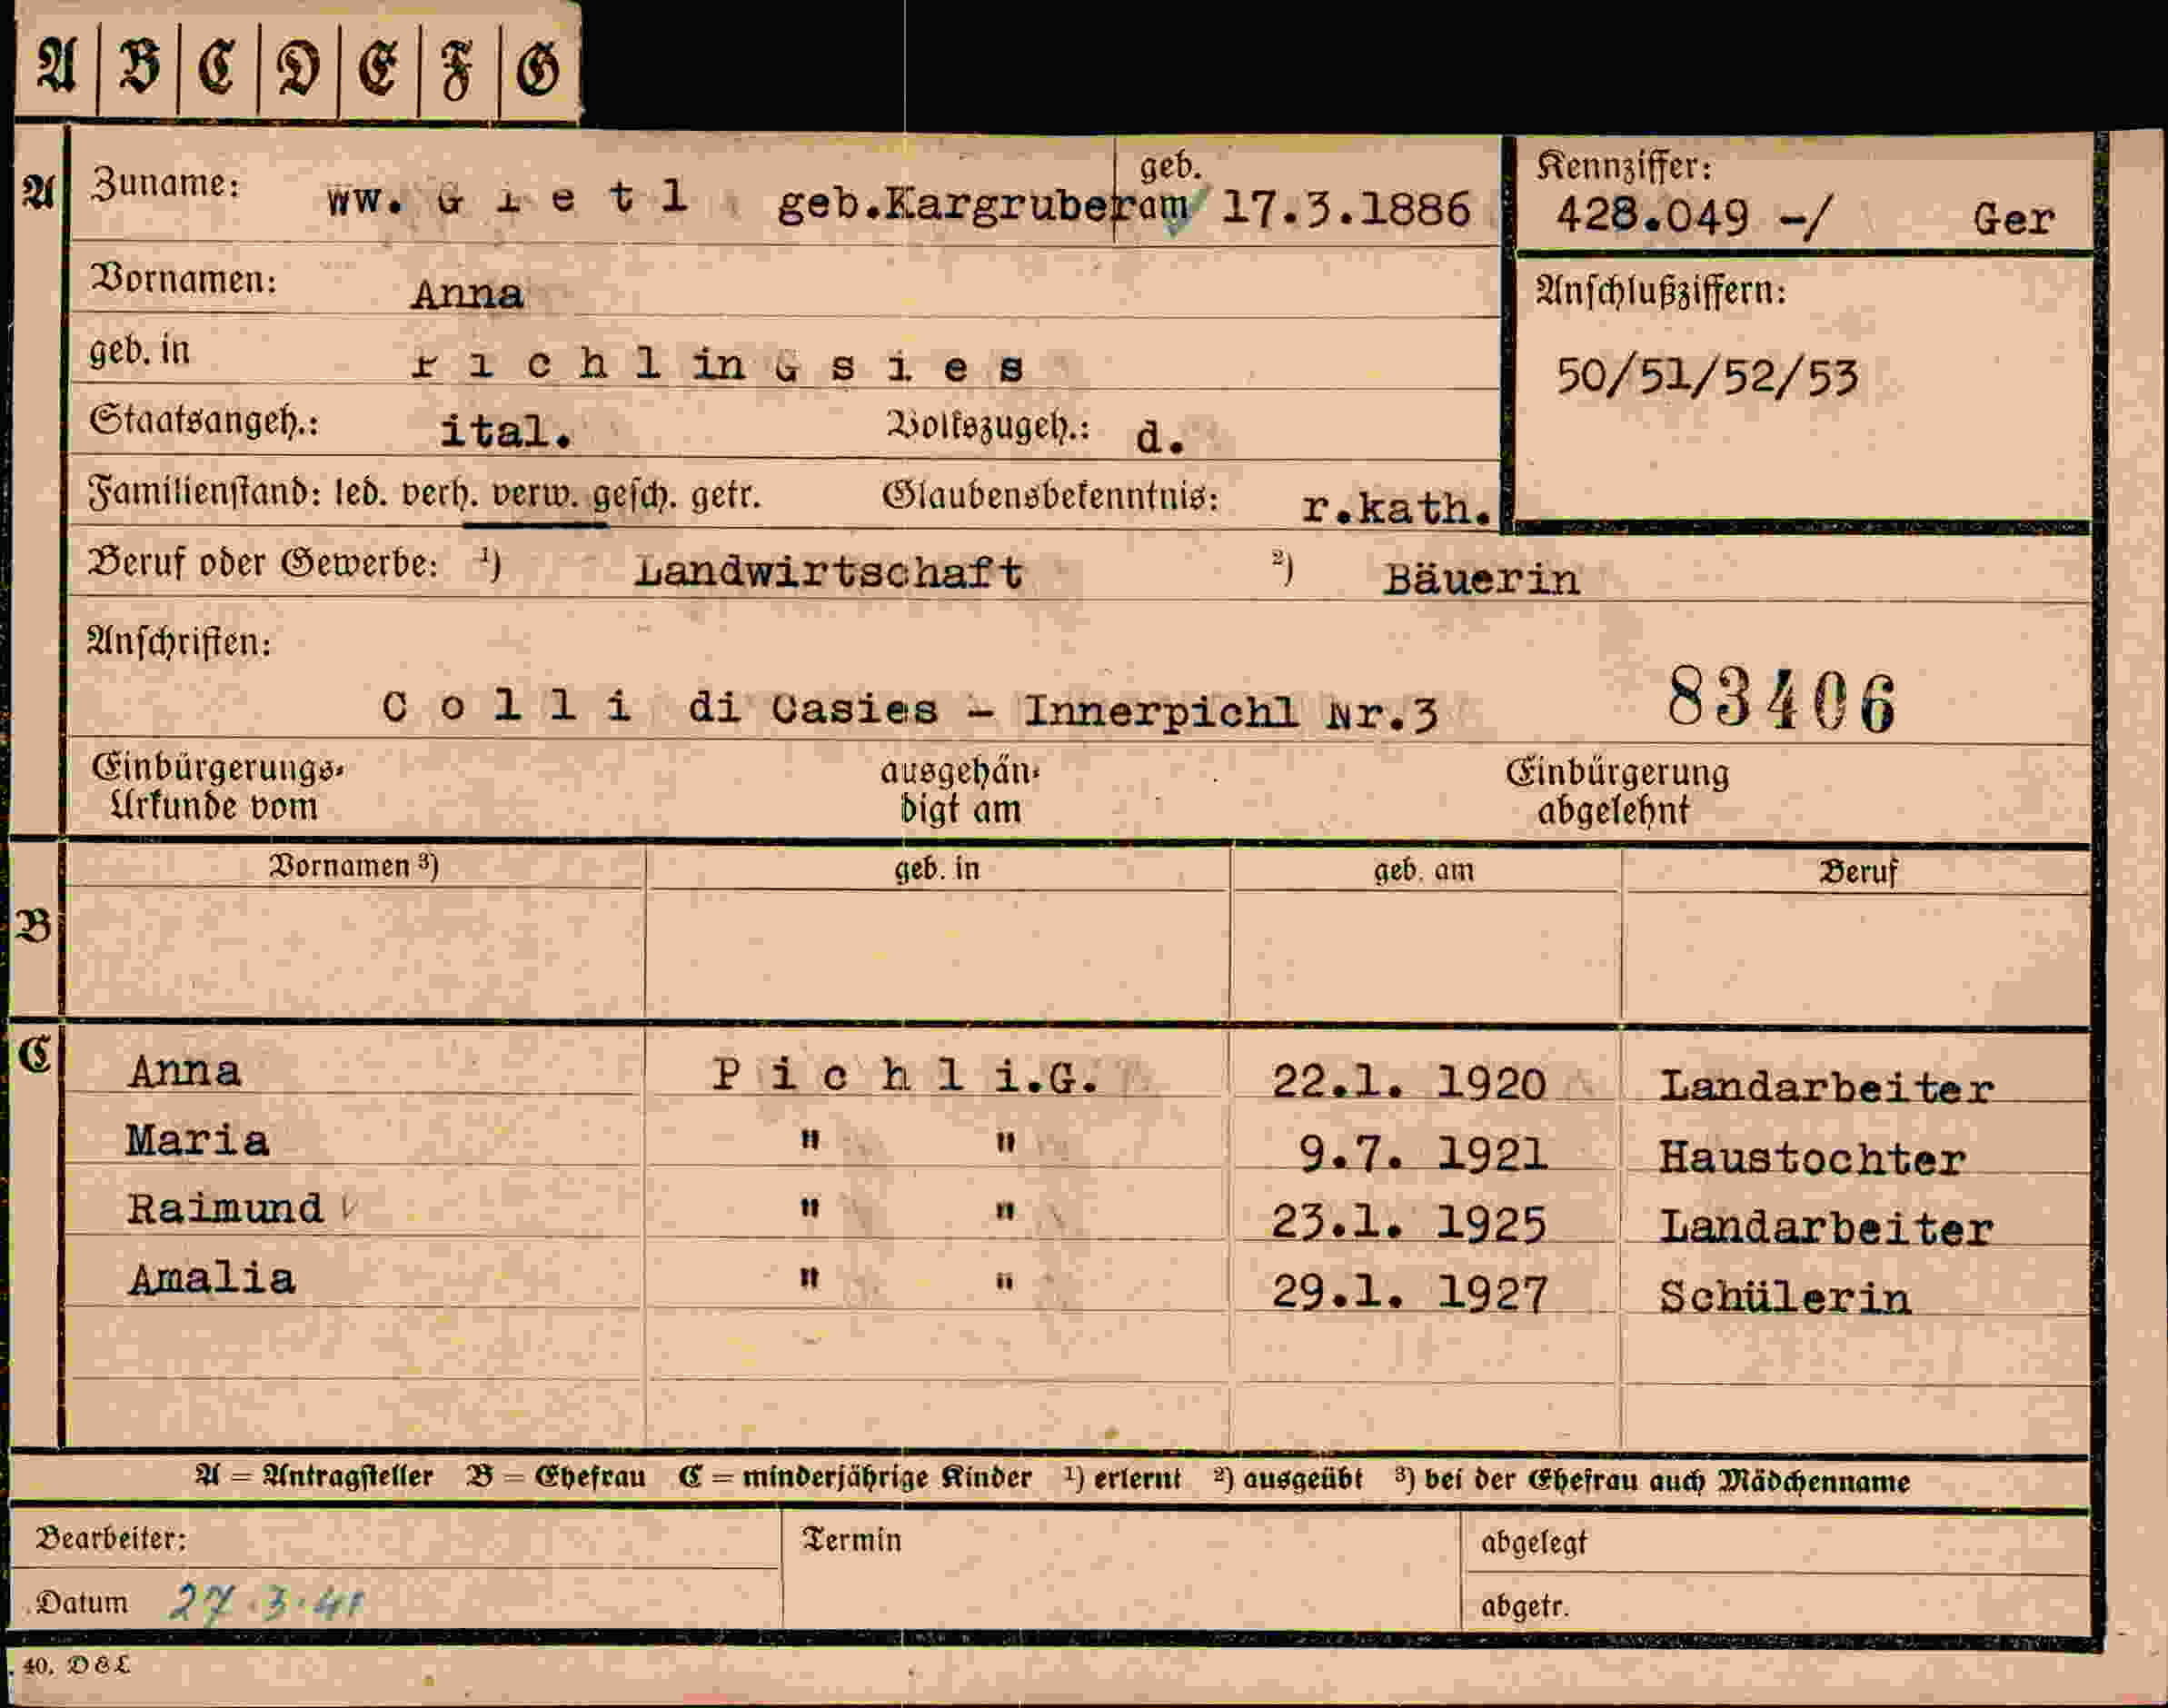 A B C D E F G
A Zuname: ww. G i e t l geb.Kargruber geb. am 17.3.1886
Kennziffer: 428.049 -/ Ger
Vornamen: Anna
Anschlußziffern:
geb. in P i c h l in G s i e s
50/51/52/53
Staatsangeh.: ital. Volkszugeh.: d.
Familienstand: led. verh. verw. gesch. getr. Glaubensbekenntnis: r.kath.
Beruf oder Gewerbe: ¹) Landwirtschaft ²) Bäuerin
Anschriften:
C o l l i di Casies - Innerpichl Nr.3 83406
Einbürgerungs-Urkunde vom ausgehändigt am Einbürgerung abgelehnt
Vornamen ³) geb. in geb. am Beruf
B
C Anna P i c h l i.G. 22.1. 1920 Landarbeiter
Maria " " 9.7. 1921 Haustochter
Raimund " " 23.1. 1925 Landarbeiter
Amalia " " 29.1. 1927 Schülerin
A = Antragsteller B = Ehefrau C = minderjährige Kinder ¹) erlernt ²) ausgeübt ³) bei der Ehefrau auch Mädchenname
Bearbeiter: Termin abgelegt
Datum 27.3.41 abgetr.
40. D&L